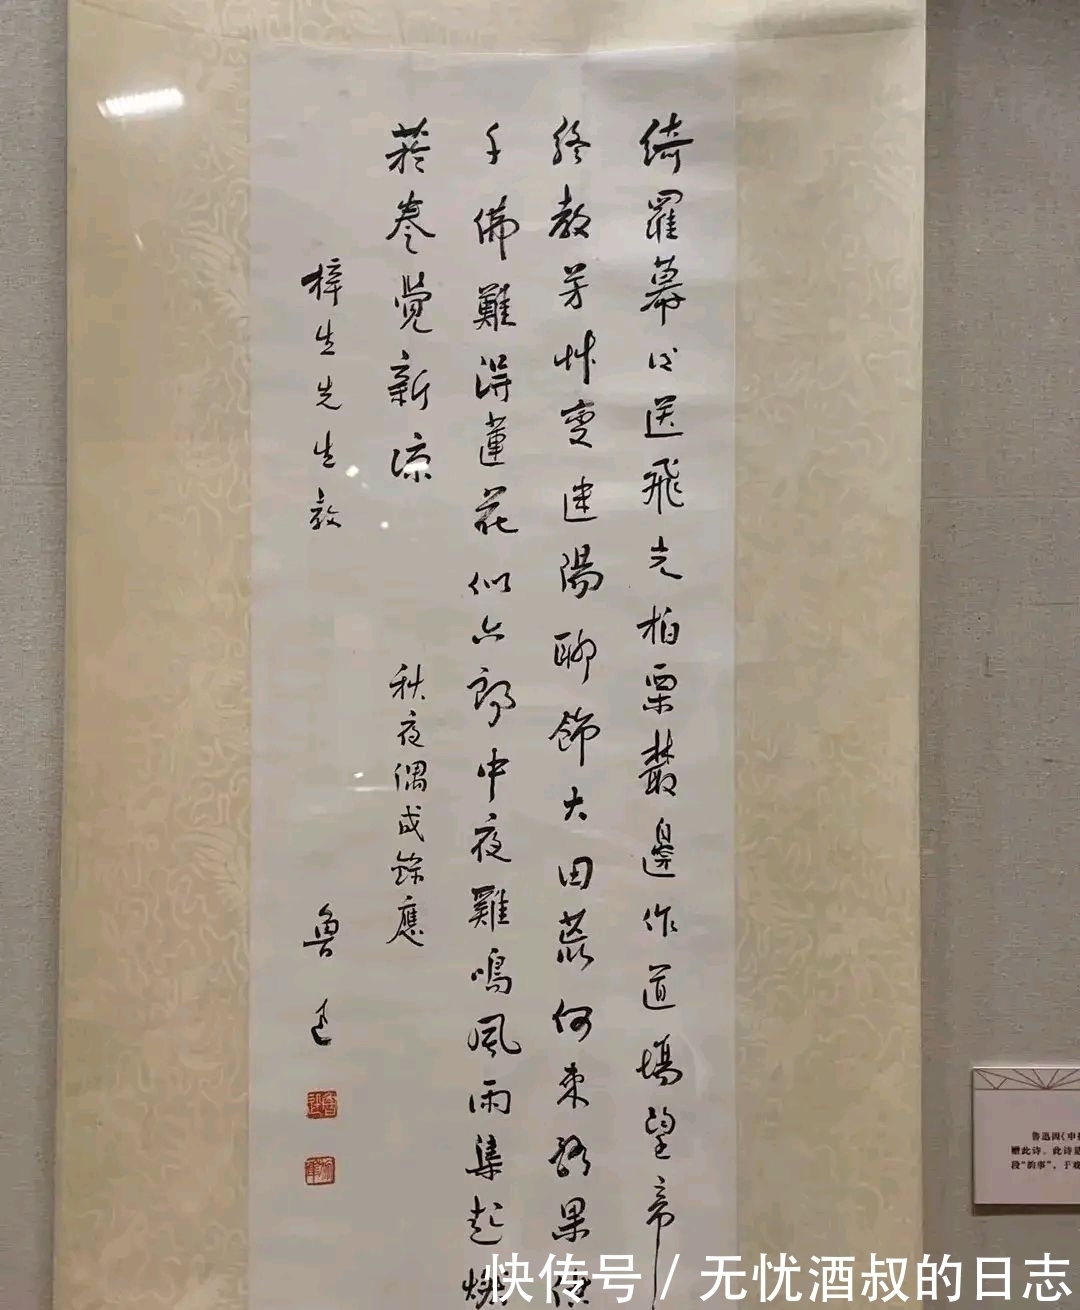 綺羅幕後送飛光柏栗叢邊作道塲望帝
終教芳艸變迷陽聊飾大田荒何來酪果供
千佛難得蓮花似六郎中夜雞鳴風雨集起燃
菸卷覺新涼
秋夜偶成錄應
梓生先生教
魯迅
鲁迅因《申
赠此诗。此诗是
段“韵事”，于
快传号 / 无忧酒叔的日志